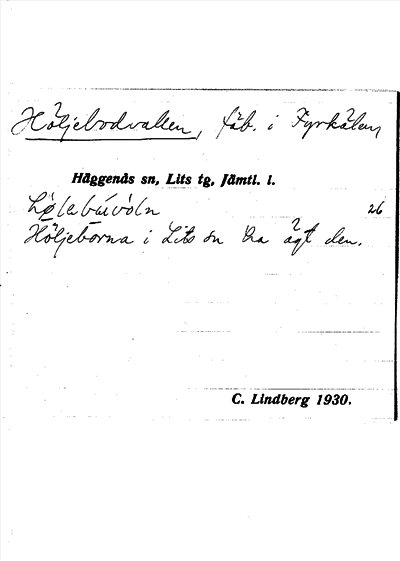 Höljebodvallen, fäb. i Fyrkälen,
Häggenås sn, Lits tg, Jämtl. l.
26
Höljeborna i Lits sn ha ägt den.
C. Lindberg 1930.